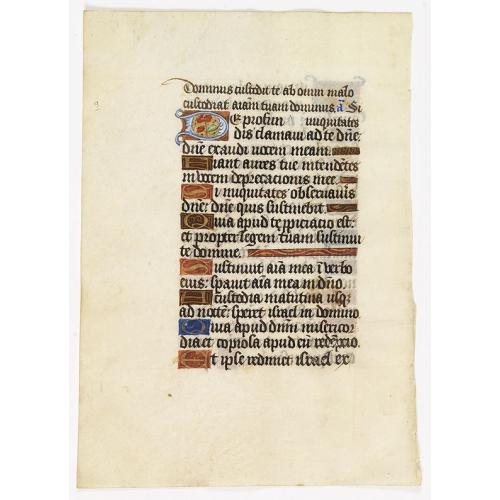 Dominus custodit te ab omni malo
custodiat aīam tuam dominus. ā Si
De profun iniquitates
dis clamavi ad te dn̄e:
dn̄e exaudi vocem meam.
Fiant aures tue intendētes
in vocem deprecacionis mee.
Si iniquitates observav̄is
dn̄e: dn̄e quis sustinebit.
Quia apud te ppiciacio est:
et propter legem tuam sustinui
te domine.
Sustinuit aīa mea ī verbo
eius: speravit aīa mea in dn̄o.
A custodia matutina usq;
ad noctē: speret israel in domino
Quia apud dn̄m misericor
dia et copiosa apud eū redēpcio.
Et ipse redimet israel ex